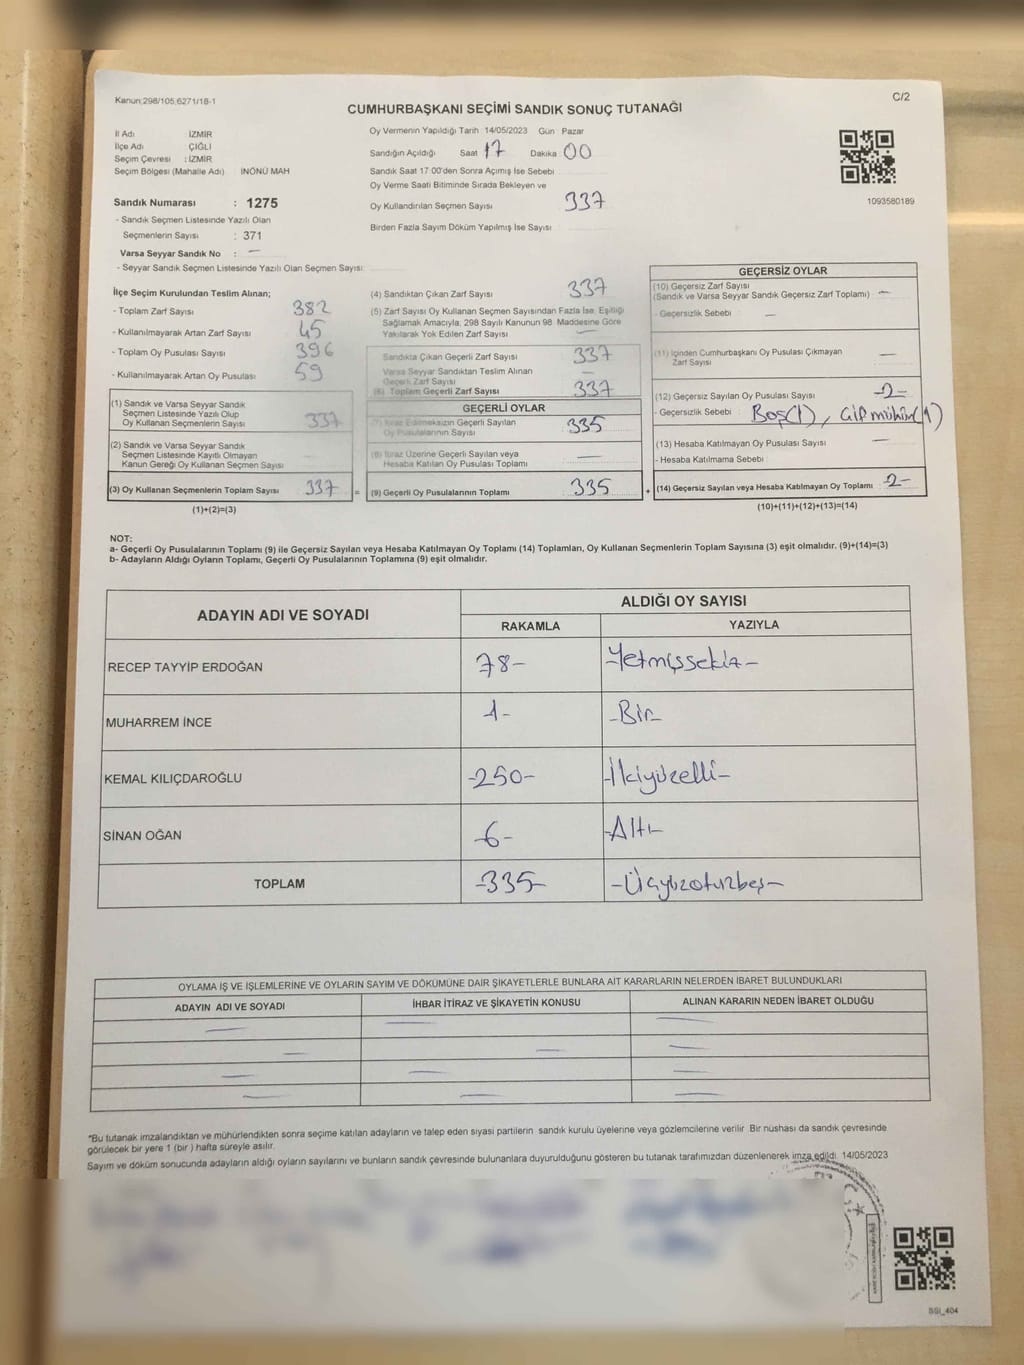 Kanun;298/105,6271/18-1
C/2
CUMHURBAŞKANI SEÇİMİ SANDIK SONUÇ TUTANAĞI
İl Adı İZMİR
İlçe Adı ÇİĞLİ
Seçim Çevresi : İZMİR
Seçim Bölgesi (Mahalle Adı) İNÖNÜ MAH
Oy Vermenin Yapıldığı Tarih 14/05/2023 Gün Pazar
Sandığın Açıldığı Saat 17 Dakika 00
Sandık Saat 17 00'den Sonra Açımış İse Sebebi
Oy Verme Saati Bitiminde Sırada Bekleyen ve
Oy Kullandırılan Seçmen Sayısı 337
Birden Fazla Sayım Döküm Yapılmış İse Sayısı
1093580189
Sandık Numarası : 1275
- Sandık Seçmen Listesinde Yazılı Olan
Seçmenlerin Sayısı : 371
Varsa Seyyar Sandık No : —
- Seyyar Sandık Seçmen Listesinde Yazılı Olan Seçmen Sayısı:
İlçe Seçim Kurulundan Teslim Alınan;
- Toplam Zarf Sayısı 382
- Kullanılmayarak Artan Zarf Sayısı 45
- Toplam Oy Pusulası Sayısı 396
- Kullanılmayarak Artan Oy Pusulası 59
(1) Sandık ve Varsa Seyyar Sandık
Seçmen Listesinde Yazılı Olup
Oy Kullanan Seçmenlerin Sayısı 337
(2) Sandık ve Varsa Seyyar Sandık
Seçmen Listesinde Kayıtlı Olmayan
Kanun Gereği Oy Kullanan Seçmen Sayısı
(3) Oy Kullanan Seçmenlerin Toplam Sayısı 337 =
(1)+(2)=(3)
(4) Sandıktan Çıkan Zarf Sayısı 337
(5) Zarf Sayısı Oy Kullanan Seçmen Sayısından Fazla İse, Eşitliği
Sağlamak Amacıyla, 298 Sayılı Kanunun 98 Maddesine Göre
Yakılarak Yok Edilen Zarf Sayısı —
Sandıkta Çıkan Geçerli Zarf Sayısı 337
Varsa Seyyar Sandıktan Teslim Alınan
Geçerli Zarf Sayısı —
(6) Toplam Geçerli Zarf Sayısı 337
GEÇERLİ OYLAR
(7) İtiraz Edilmeksizin Geçerli Sayılan
Oy Pusulalarının Sayısı 335
(8) İtiraz Üzerine Geçerli Sayılan veya
Hesaba Katılan Oy Pusulası Toplamı —
(9) Geçerli Oy Pusulalarının Toplamı 335 +
GEÇERSİZ OYLAR
(10) Geçersiz Zarf Sayısı
(Sandık ve Varsa Seyyar Sandık Geçersiz Zarf Toplamı) —
- Geçersizlik Sebebi —
(11) İçinden Cumhurbaşkanı Oy Pusulası Çıkmayan
Zarf Sayısı —
(12) Geçersiz Sayılan Oy Pusulası Sayısı -2-
- Geçersizlik Sebebi : Boş(1), Çift mühür(1)
(13) Hesaba Katılmayan Oy Pusulası Sayısı —
- Hesaba Katılmama Sebebi
(14) Geçersiz Sayılan veya Hesaba Katılmayan Oy Toplamı -2-
(10)+(11)+(12)+(13)=(14)
NOT:
a- Geçerli Oy Pusulalarının Toplamı (9) ile Geçersiz Sayılan veya Hesaba Katılmayan Oy Toplamı (14) Toplamları, Oy Kullanan Seçmenlerin Toplam Sayısına (3) eşit olmalıdır. (9)+(14)=(3)
b- Adayların Aldığı Oyların Toplamı, Geçerli Oy Pusulalarının Toplamına (9) eşit olmalıdır.
ADAYIN ADI VE SOYADI
ALDIĞI OY SAYISI
RAKAMLA YAZIYLA
RECEP TAYYİP ERDOĞAN 78- -Yetmişsekiz-
MUHARREM İNCE 1- -Bir-
KEMAL KILIÇDAROĞLU -250- -İkiyüzelli-
SİNAN OĞAN -6- -Altı-
TOPLAM -335- -Üçyüzotuzbeş-
OYLAMA İŞ VE İŞLEMLERİNE VE OYLARIN SAYIM VE DÖKÜMÜNE DAİR ŞİKAYETLERLE BUNLARA AİT KARARLARIN NELERDEN İBARET BULUNDUKLARI
ADAYIN ADI VE SOYADI İHBAR İTİRAZ VE ŞİKAYETİN KONUSU ALINAN KARARIN NEDEN İBARET OLDUĞU
*Bu tutanak imzalandıktan ve mühürlendikten sonra seçime katılan adayların ve talep eden siyasi partilerin sandık kurulu üyelerine veya gözlemcilerine verilir. Bir nüshası da sandık çevresinde
görülecek bir yere 1 (bir) hafta süreyle asılır.
Sayım ve döküm sonucunda adayların aldığı oyların sayılarını ve bunların sandık çevresinde bulunanlara duyurulduğunu gösteren bu tutanak tarafımızdan düzenlenerek imza edildi. 14/05/2023
BSI_404